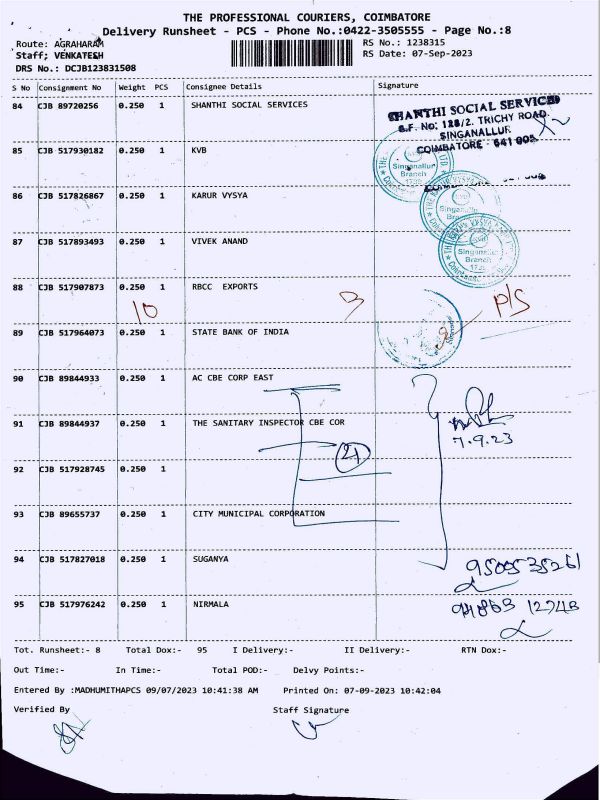 THE PROFESSIONAL COURIERS, COIMBATORE
Delivery Runsheet - PCS - Phone No.:0422-3505555 - Page No.:8
Route: AGRAHARAM RS No.: 1238315
Staff; VENKATESH RS Date: 07-Sep-2023
DRS No.: DCJB123831508
S No Consignment No Weight PCS Consignee Details Signature
84 CJB 89720256 0.250 1 SHANTHI SOCIAL SERVICES
SHANTHI SOCIAL SERVICES
S.F. No: 128/2. TRICHY ROAD
SINGANALLUR
COIMBATORE - 641 005
85 CJB 517930182 0.250 1 KVB
Singanallur
Branch
1739
86 CJB 517826867 0.250 1 KARUR VYSYA
Singanallur
Branch
87 CJB 517893493 0.250 1 VIVEK ANAND
Singanallur
Branch
1739
88 CJB 517907873 0.250 1 RBCC EXPORTS
10 3 P/S
89 CJB 517964073 0.250 1 STATE BANK OF INDIA
90 CJB 89844933 0.250 1 AC CBE CORP EAST
91 CJB 89844937 0.250 1 THE SANITARY INSPECTOR CBE COR
7.9.23
92 CJB 517928745 0.250 1
93 CJB 89655737 0.250 1 CITY MUNICIPAL CORPORATION
94 CJB 517827018 0.250 1 SUGANYA
9500535261
95 CJB 517976242 0.250 1 NIRMALA
Tot. Runsheet:- 8 Total Dox:- 95 I Delivery:- II Delivery:- RTN Dox:-
Out Time:- In Time:- Total POD:- Delvy Points:-
Entered By :MADHUMITHAPCS 09/07/2023 10:41:38 AM Printed On: 07-09-2023 10:42:04
Verified By Staff Signature